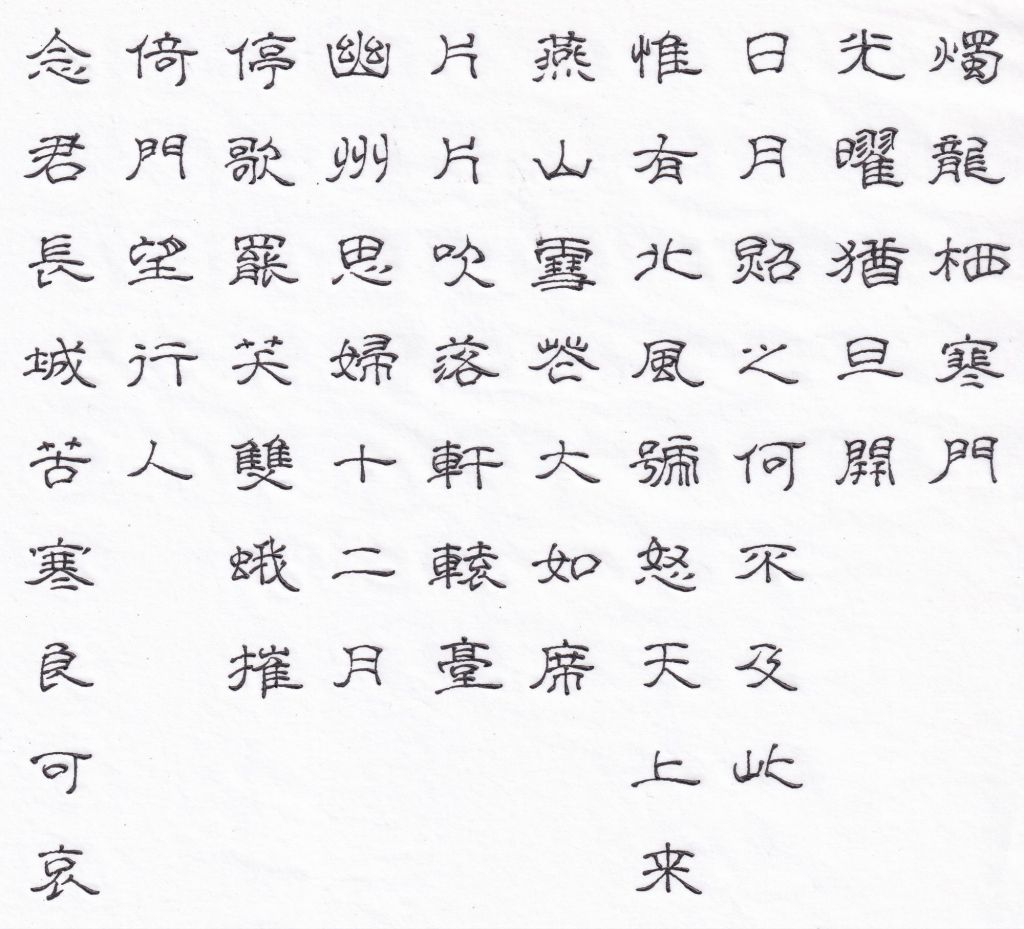 燭龍栖寒門
光曜猶旦開
日月照之何不及此
惟有北風號怒天上来
燕山雪花大如席
片片吹落軒轅臺
幽州思婦十二月
停歌罷笑雙蛾摧
倚門望行人
念君長城苦寒良可哀